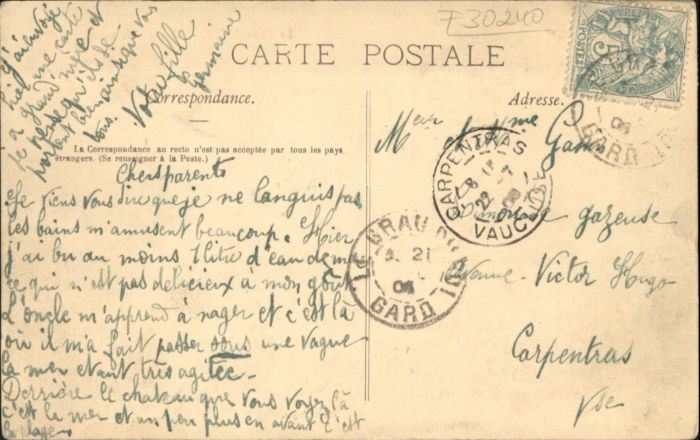 F30240
J'ai envoyé
hier une carte
à grand'mère et
je pense qu'ils se
portent bien ainsi que vous
tous.
Votre fille
Germaine
CARTE POSTALE
Correspondance.
Adresse.
La Correspondance au recto n'est pas acceptée par tous les pays
étrangers. (Se renseigner à la Poste.)
Chers parents
Je viens vous dire que je ne languis pas
les bains m'amusent beaucoup. Hier
j'ai bu au moins 1 litre d'eau de mer
ce qui n'est pas délicieux à mon goût.
L'oncle m'apprend à nager et c'est là
où il m'a fait passer sous une vague
la mer étant très agitée.
Derrière le château que vous voyez là
c'est la mer et un peu plus en avant c'est
la plage.
Mr et Mme
gazeuse
Avenue Victor Hugo
Carpentras
Vse
CARPENTRAS
VAUCLUSE
22
LE GRAU DU ROI
21
GARD
GARD
5
POSTES